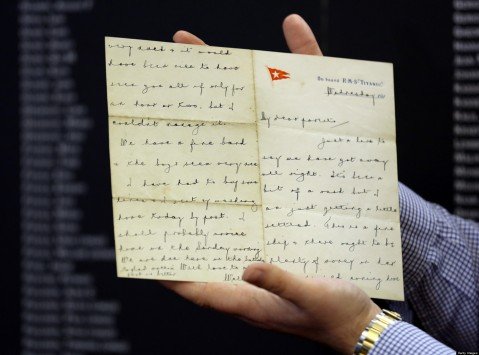 very much & it would
have been nice to have
seen you all if only for
an hour or two, but I
couldn't manage it.
We have a fine band
& the boys seem very nice.
I have had to buy some
linen & I sent my washing
home today by post. I
shall probably arrive
home on the Sunday morning.
We are due here on the Saturday
With love to all
foot is better
ON BOARD R·M·S "TITANIC"
Wednesday 191
My dear parents,
Just a line to
say we have got away
all right. It's been a
bit of a rush but I
am just getting a little
settled. This is a fine
ship & there ought to be
plenty of money on her.
missed coming home
Getty Images